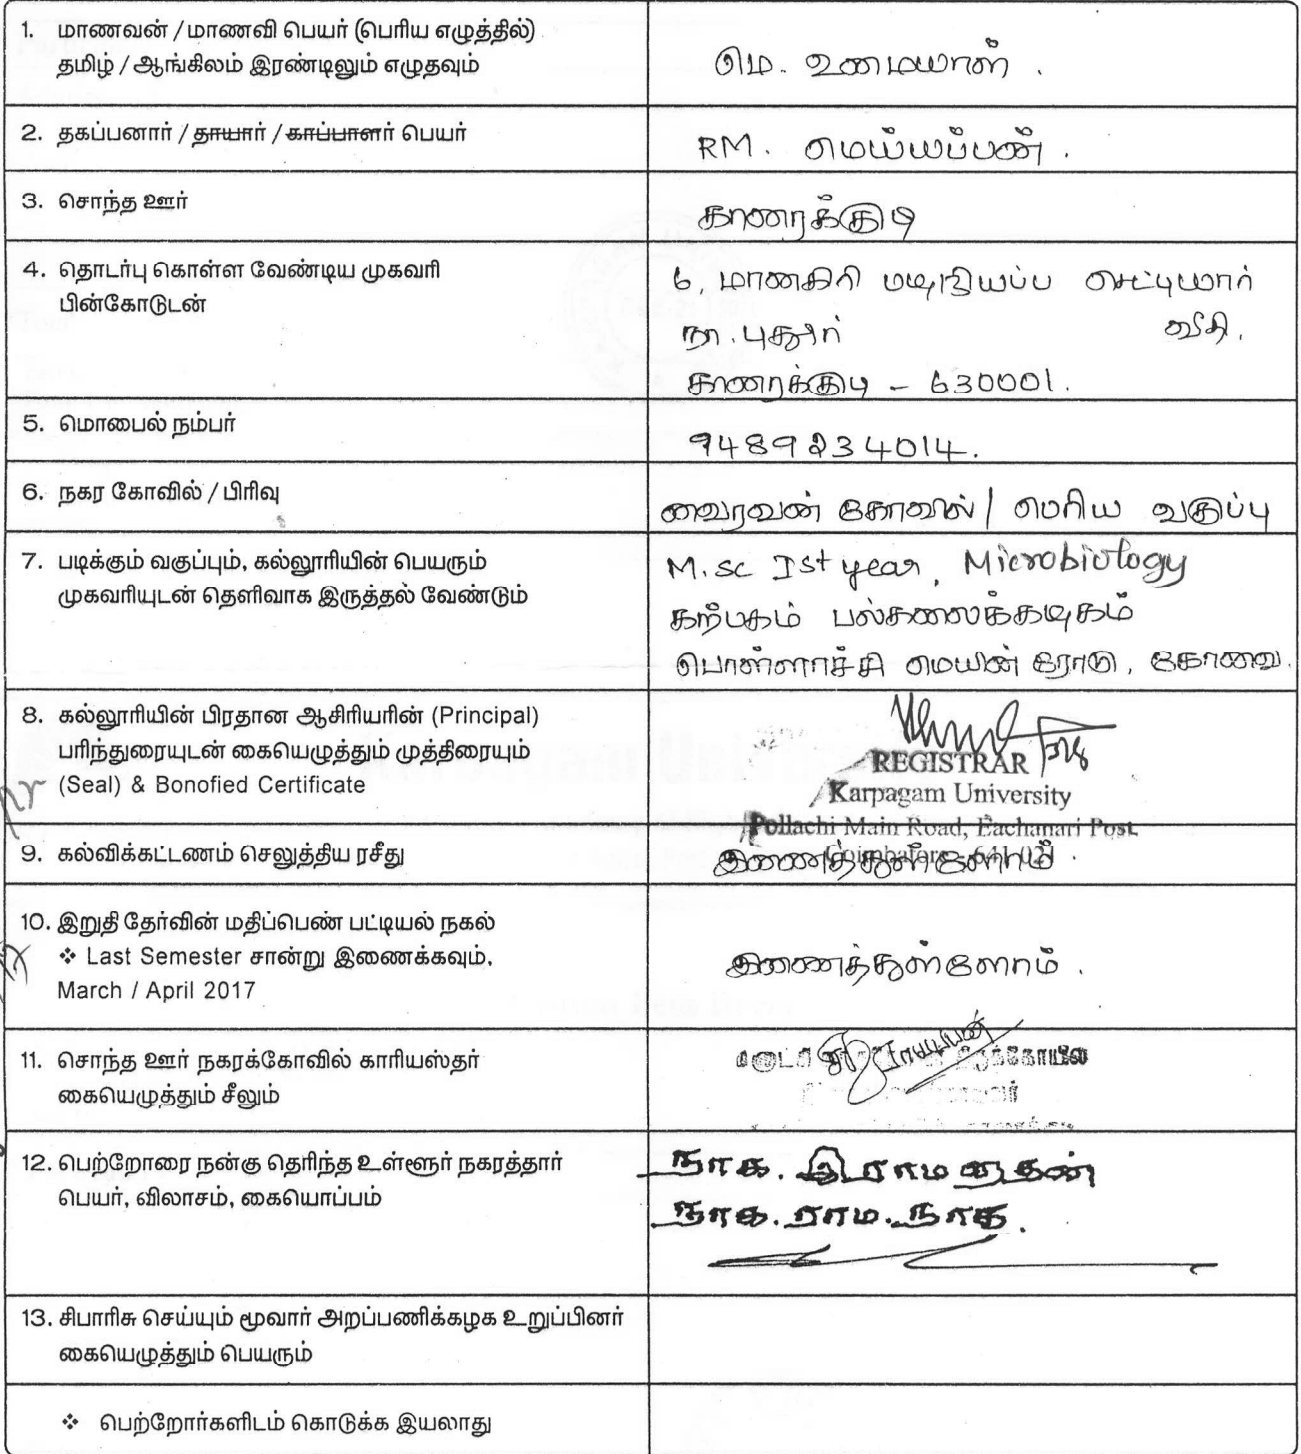 1. மாணவன் / மாணவி பெயர் (பெரிய எழுத்தில்)
தமிழ் / ஆங்கிலம் இரண்டிலும் எழுதவும்
மெ. உமையாள் .
2. தகப்பனார் / தாயார் / காப்பாளர் பெயர்
RM. மெய்யப்பன் .
3. சொந்த ஊர்
காரைக்குடி
4. தொடர்பு கொள்ள வேண்டிய முகவரி
பின்கோடுடன்
6, மானகிரி பழநியப்ப செட்டியார்
வீதி.
நா. புதூர்
காரைக்குடி - 630001.
5. மொபைல் நம்பர்
9489234014.
6. நகர கோவில் / பிரிவு
வைரவன் கோவில் / பெரிய வகுப்பு
7. படிக்கும் வகுப்பும், கல்லூரியின் பெயரும்
முகவரியுடன் தெளிவாக இருத்தல் வேண்டும்
M.sc Ist year, Microbiology
கற்பகம் பல்கலைக்கழகம்
பொள்ளாச்சி மெயின் ரோடு, கோவை.
8. கல்லூரியின் பிரதான ஆசிரியரின் (Principal)
பரிந்துரையுடன் கையெழுத்தும் முத்திரையும்
(Seal) & Bonofied Certificate
REGISTRAR
Karpagam University
Pollachi Main Road, Eachanari Post,
Coimbatore - 641 021
9. கல்விக்கட்டணம் செலுத்திய ரசீது
இணைத்துள்ளோம் .
10. இறுதி தேர்வின் மதிப்பெண் பட்டியல் நகல்
❖ Last Semester சான்று இணைக்கவும்.
March / April 2017
இணைத்துள்ளோம் .
11. சொந்த ஊர் நகரக்கோவில் காரியஸ்தர்
கையெழுத்தும் சீலும்
12. பெற்றோரை நன்கு தெரிந்த உள்ளூர் நகரத்தார்
பெயர், விலாசம், கையொப்பம்
நாக. இராமநாதன்
நாக. ராம. நாக.
13. சிபாரிசு செய்யும் மூவார் அறப்பணிக்கழக உறுப்பினர்
கையெழுத்தும் பெயரும்
❖ பெற்றோர்களிடம் கொடுக்க இயலாது